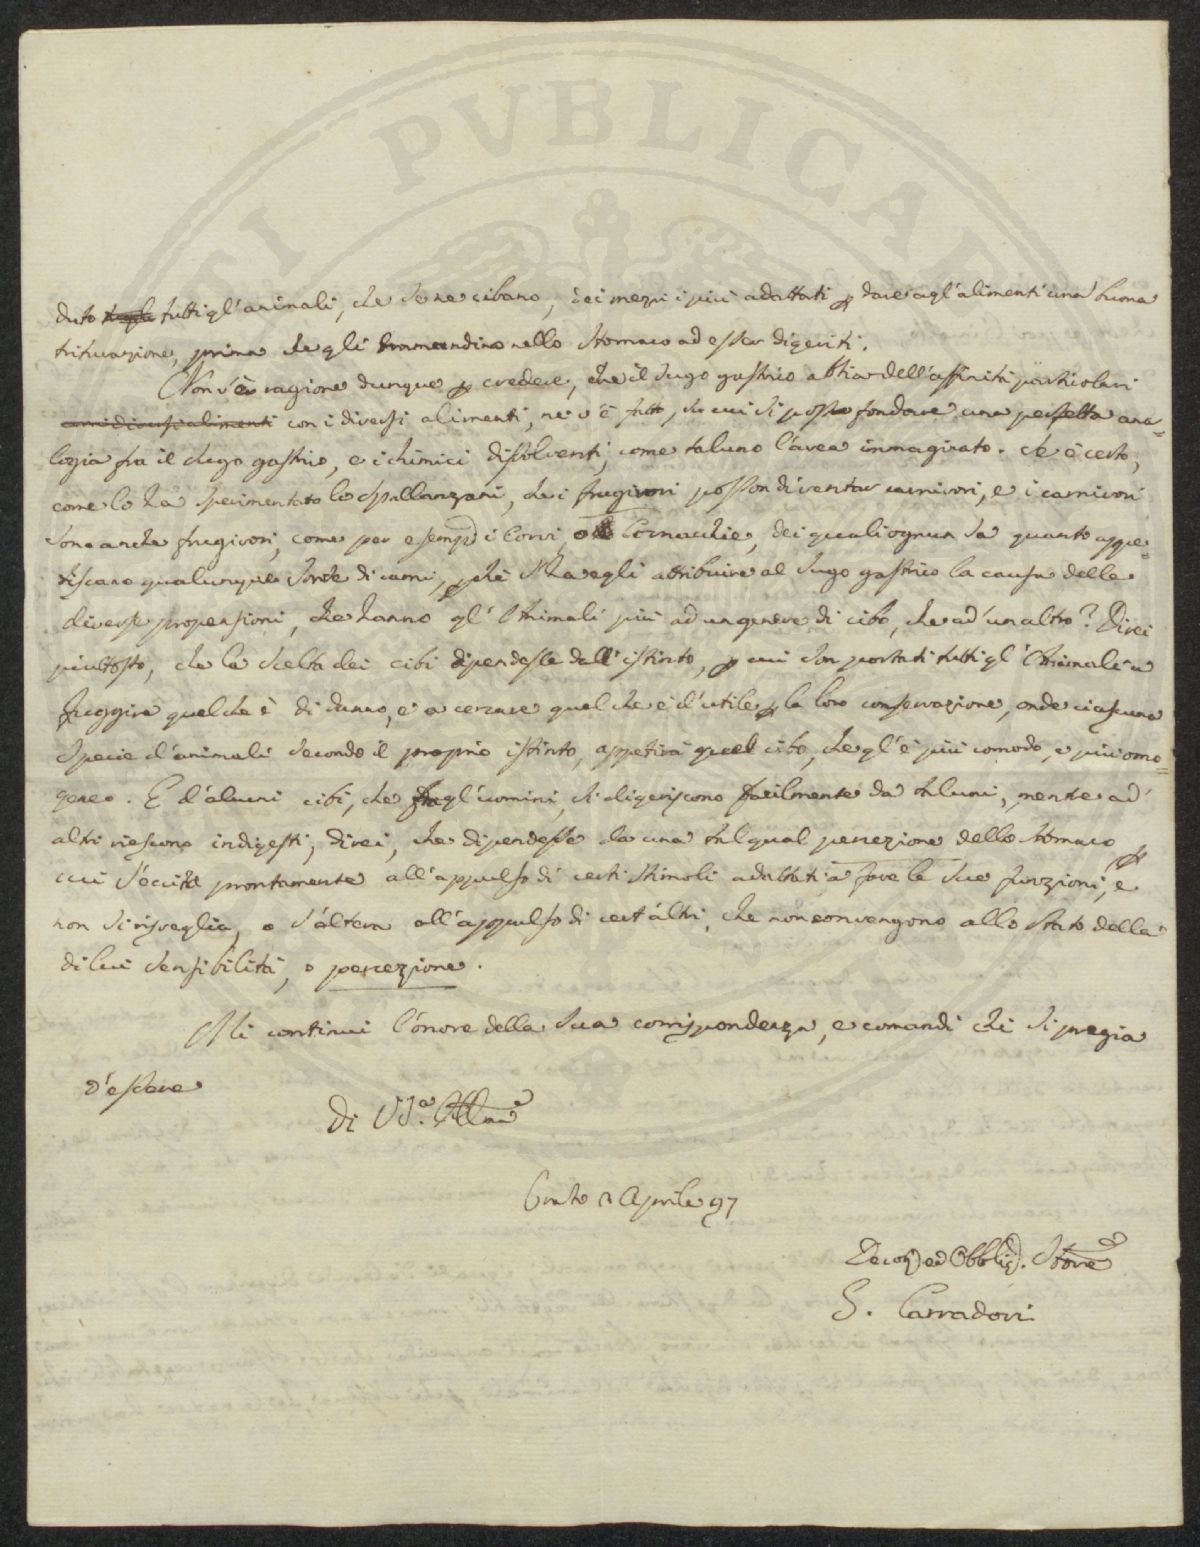 duto tutti gl'animali, che se ne cibano, dei mezzi i più adattati p dare agl'alimenti una buona
triturazione, prima che gli tramandino nello stomaco ad esser digeriti.
Non v'è ragione dunque p credere, che il sugo gastrico abbia dell'affinità particolari
coni diversi alimenti con i diversi alimenti, ne v'è fatto, su cui si possa fondare una perfetta ana=
logia fra il sugo gastrico, e i chimici dissolventi, come taluno l'avea immaginato. Se è certo,
come lo ha sperimentato lo Spallanzani, che i frugivori posson diventar carnivori, e i carnivori
sono anche frugivori, come per esemp i Corvi o le Cornacchie, dei quali ognun sa quanto appe=
tiscano qualunque sorte di carni, pchè s'ha egli attribuire al sugo gastrico la causa delle
diverse propensioni, che hanno gl'Animali più ad un genere di cibo, che ad'un altro? Direi
piuttosto, che la scelta dei cibi dipendesse dall'istinto, p cui son portati tutti gl'Animali a
fuggire quel che è di danno, e a cercare quel che è d'utile p la loro conservazione, onde ciascuna
specie d'animali secondo il proprio istinto, appetirà quel cibo, che gl'è più comodo, e più omo=
geneo. E d'alcuni cibi, che fra gl'uomini, si digeriscono facilmente da taluni, mentre ad'
altri riescono indigesti, direi, che dipendesse da una tal qual percezione dello stomaco p
cui s'eccita prontamente all'appulso di certi stimoli adattati a fare le sue funzioni, e
non si risveglia, o s'altera all'appulso di cert'altri, che non convengono allo stato della
di lui sensibilità, o percezione.
Mi continui l'onore della sua corrispondenza, e comandi chi si pregia
d'essere
Di V.S.a Ill.ma
Prato 2 Aprile 97
Devo) ed Obblig). S.tore
G. Carradori